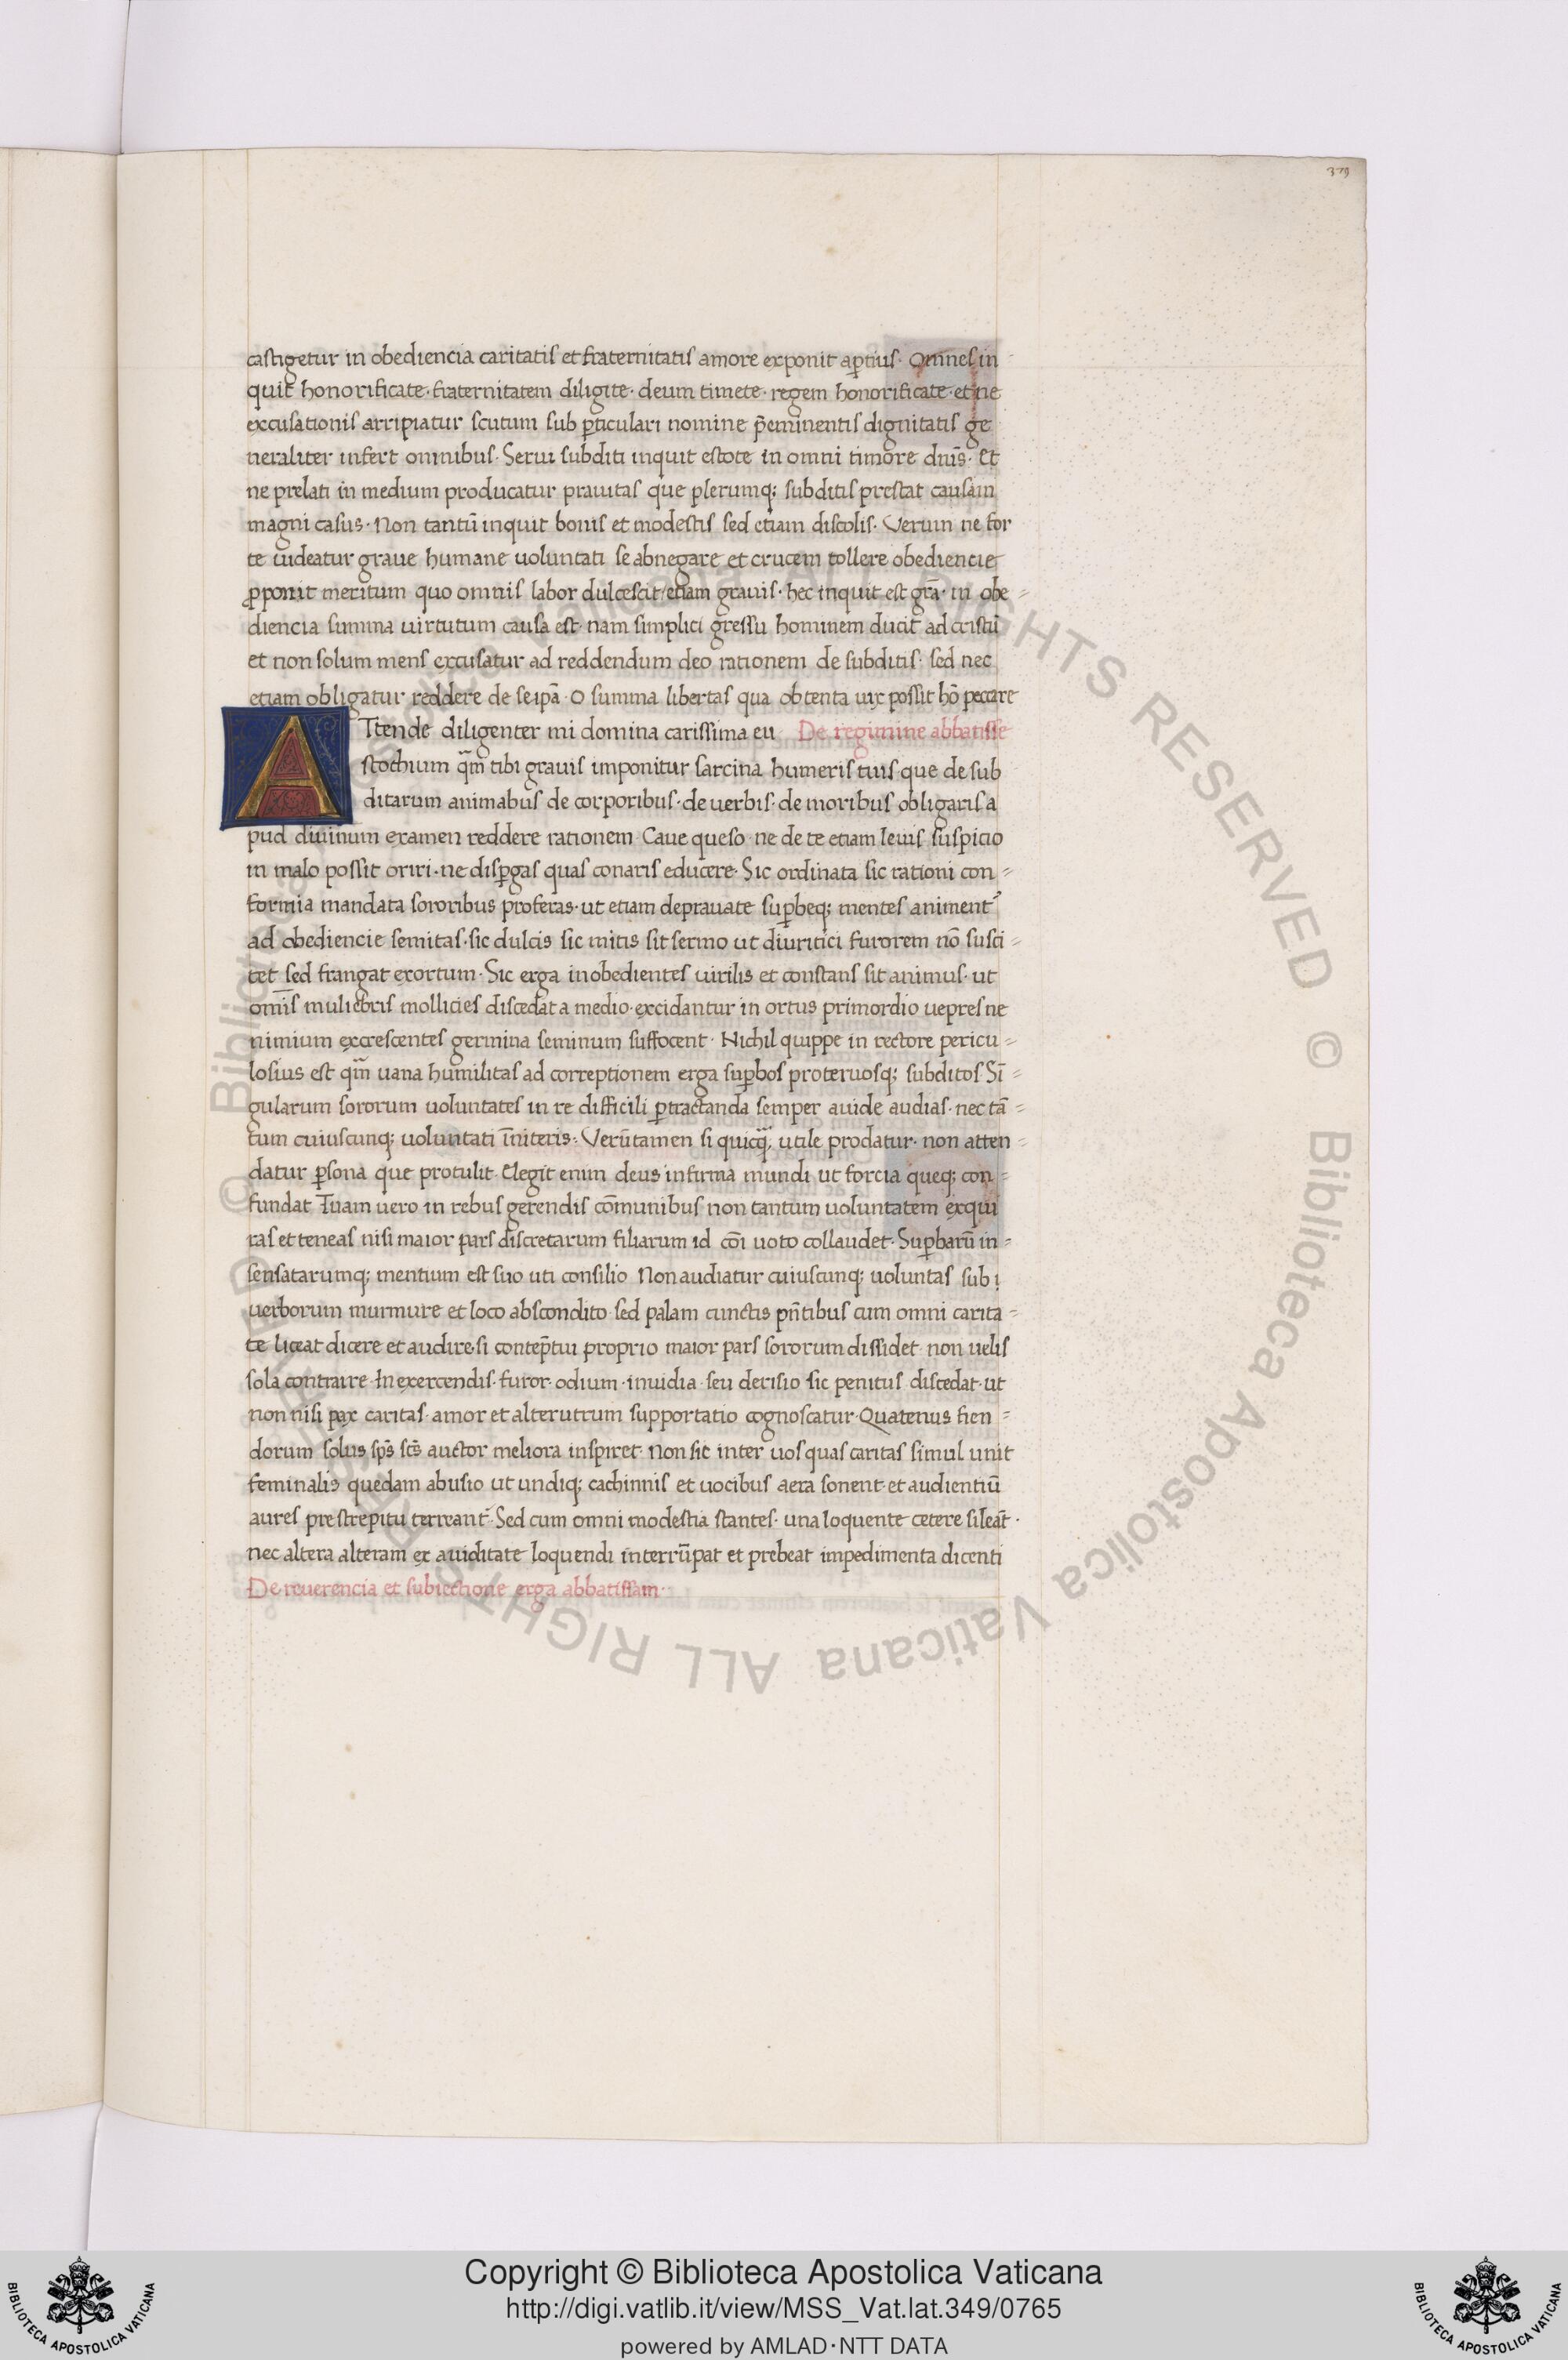 379
castigetur in obediencia caritatis et fraternitatis amore exponit ap̱tius · Omnes in⸗
quit honorificate · fraternitatem diligite · deum timete · regem honorificate · et ne
excusationis arripiatur scutum sub ꝑticulari nomine p̄eminentis dignitatis ge
neraliter infert omnibus · Serui subditi inquit estote in omni timore dn̄is · Et
ne prelati in medium producatur prauitas que plerumq; subditis prestat causam
magni casus · Non tantū inquit bonis et modestis sed etiam discolis · Verum ne for
te uideatur graue humane uoluntati se abnegare et crucem tollere obediencie
ꝓponit meritum quo omnis labor dulcescit / etiam grauis · hec inquit est gr̄a · in obe⸗
diencia summa uirtutum causa est · nam simplici gressu hominem ducit ad cristū
et non solum mens excusatur ad reddendum deo rationem de subditis · sed nec
etiam obligatur reddere de seipā · O summa libertas qua obtenta uix possit hō peccare
ATtende diligenter mi domina carissima eu De regimine abbatisse
stochium qm̄ tibi grauis imponitur sarcina humeris tuis que de sub
ditarum animabus de corporibus · de uerbis · de moribus obligaris a
pud diuinum examen reddere rationem · Caue queso · ne de te etiam leuis suspicio
in malo possit oriri · ne disꝑgas quas conaris educere · Sic ordinata sic rationi con⸗
formia mandata sororibus proferas · ut etiam deprauate suꝑbeq; mentes animentᷣ
ad obediencie semitas · sic dulcis sic mitis sit sermo ut diuritici furorem nō susci⸗
tet sed frangat exortum · Sic erga inobedientes uirilis et constans sit animus · ut
om̄is muliebris mollicies discedat a medio · excidantur in ortus primordio uepres ne
nimium excrescentes germina seminum suffocent · Nichil quippe in rectore pericu⸗
losius est qm̄ uana humilitas ad correptionem erga suꝑbos proteruosq; subditos · Sī⸗
gularum sororum uoluntates in re difficili ꝑtractanda semper auide audias · nec tā⸗
tum cuiuscunq; uoluntati īniteris · Verūtamen si quicq̄ utile prodatur · non atten⸗
datur ꝑsona que protulit · Elegit enim deus infirma mundi ut forcia queq; con⸗
fundat Tuam uero in rebus gerendis cōmunibus non tantum uoluntatem exqui
ras et teneas nisi maior pars discretarum filiarum id cōi uoto collaudet · Suꝑbarū in⸗
sensatarumq; mentium est suo uti consilio Non audiatur cuiuscunq; uoluntas sub i
uerborum murmure et loco abscondito · sed palam cunctis pn̄tibus cum omni carita⸗
te liceat dicere et audire · si contep̄tui proprio maior pars sororum dissidet · non uelis
sola contraire · In exercendis · furor · odium · inuidia · seu derisio sic penitus discedat · ut
non nisi pax caritas · amor et alterutrum supportatio cognoscatur · Quatenus fien⸗
dorum solus sp̄s sc̄s auctor meliora inspiret · Non sit inter uos quas caritas simul unit
feminalis quedam abusio ut undiq; cachinnis et uocibus aera sonent · et audientiū
aures pre strepitu terreantᷣ · Sed cum omni modestia stantes · una loquente cetere sileāt ·
nec altera alteram ex auiditate loquendi interrūpat et prebeat impedimenta dicenti
De reuerencia et subiectione erga abbatissam ·
© Biblioteca Apostolica Vaticana ALL RIGHTS RESERVED © Biblioteca Apostolica Vaticana ALL RIGHTS RESERVED
Copyright © Biblioteca Apostolica Vaticana
http://digi.vatlib.it/view/MSS_Vat.lat.349/0765
powered by AMLAD·NTT DATA
BIBLIOTECA APOSTOLICA VATICANA
BIBLIOTECA APOSTOLICA VATICANA